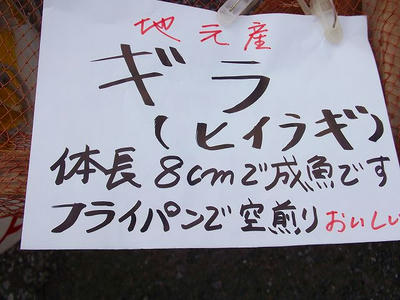 地元産
ギラ
(ヒイラギ)
体長8cmで成魚です
フライパンで空煎りおいしい